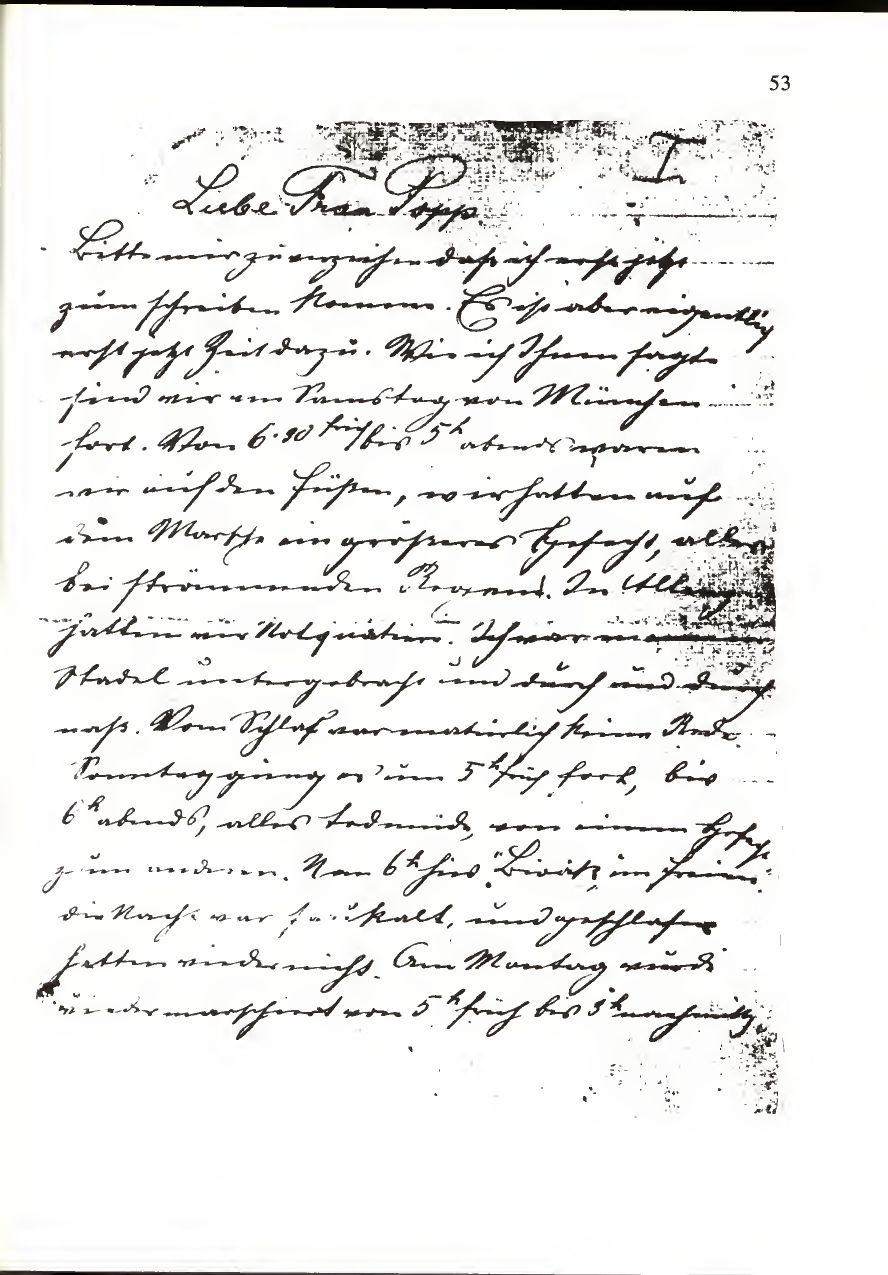 53
I
Liebe Frau Popp.
Bitte mir zu verzeihen daß ich erst jetzt
zum schreiben komme. Es ist aber eigentlich
erst jetzt Zeit dazu. Wie ich Ihnen sagte
sind wir am Samstag von München
fort. Von 6·30 früh bis 5h abends waren
wir auf den Füßen, wir hatten auf
dem Marsche ein größeres Gefecht, alles
bei strömmenden Regens. In Alling
hatten wir Notquatier. Ich war in
Stadel untergebracht und durch und durch
naß. Vom Schlaf war natürlich keine Rede.
Sonntag gieng es um 5h früh fort, bis
6h abends, alles todmüde, von einem Gefecht
zum anderen. Um 6h hies "Biwak" im freien.
die Nacht war saukalt, und geschlafen
hatten wieder nicht. Am Montag wurde
wieder marschiert von 5h früh bis 3h nachmittg